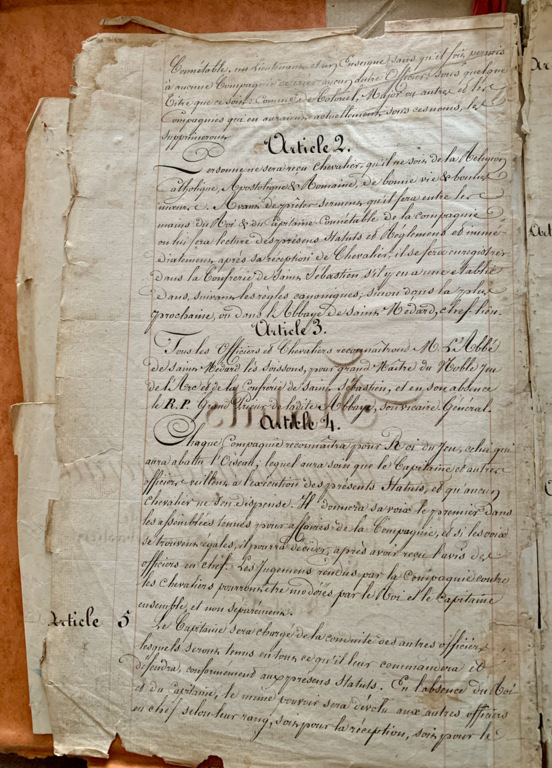 Connétable, un Lieutenant et un Enseigne, sans qu'il soit permis
à aucune Compagnie de créer aucun autre Officier sous quelque
titre que ce soit: Comme de Colonel, Major ou autre et les
Compagnies qui en auraient actuellement sous ces noms, les
supprimeront
Article 2.
Personne ne sera reçu Chevalier, qu'il ne soit de la Religion
Catholique, Apostolique & Romaine, de bonne vie & bonnes
mœurs. Avant de prêter serment qu'il fera entre les
mains du Roi & du Capitaine Connétable de la compagnie
on lui fera lecture des présens Statuts et Réglemens et immé-
diatement après sa réception de Chevalier, il se fera enregistrer
dans la Confrerie de Saint Sébastien s'il y en a une établie
dans, suivant les règles canoniques, sinon dans la plus
prochaine, ou dans l'Abbaye de Saint Médard, chef lieu.
Article 3.
Tous les Officiers et Chevaliers reconnaîtront M. L'Abbé
de Saint Médard les Soissons, pour grand Maître du Noble Jeu
de l'Arc et de la Confrerie de Saint Sébastien, et en son absence
le R.P. Grand Prieur de ladite Abbaye, son vicaire Général.
Article 4.
Chaque Compagnie reconnaîtra pour Roi du Jeu, celui qui
aura abattu l'Oiseau, lequel aura soin que le Capitaine et autres
officiers veillent à l'exécution des présents Statuts, et qu'aucun
chevalier ne s'en dispense. Il donnera sa voix le premier dans
les assemblées tenues pour affaires de la Compagnie, et si les voix
se trouvent égales, il pourra décider, après avoir reçu l'avis des
officiers en chef. Les Jugemens rendus par la Compagnie contre
les chevaliers pourront être modérés par le Roi et le Capitaine
ensemble, et non séparément.
Article 5
Le Capitaine sera chargé de la conduite des autres officiers
lesquels seront tenus en tout ce qu'il leur commandera et
défendra, conformément aux présens Statuts. En l'absence du Roi
et du Capitaine, le même pouvoir sera dévolu aux autres officiers
en chef selon leur rang, soit pour la réception, soit pour le
Ar
Art